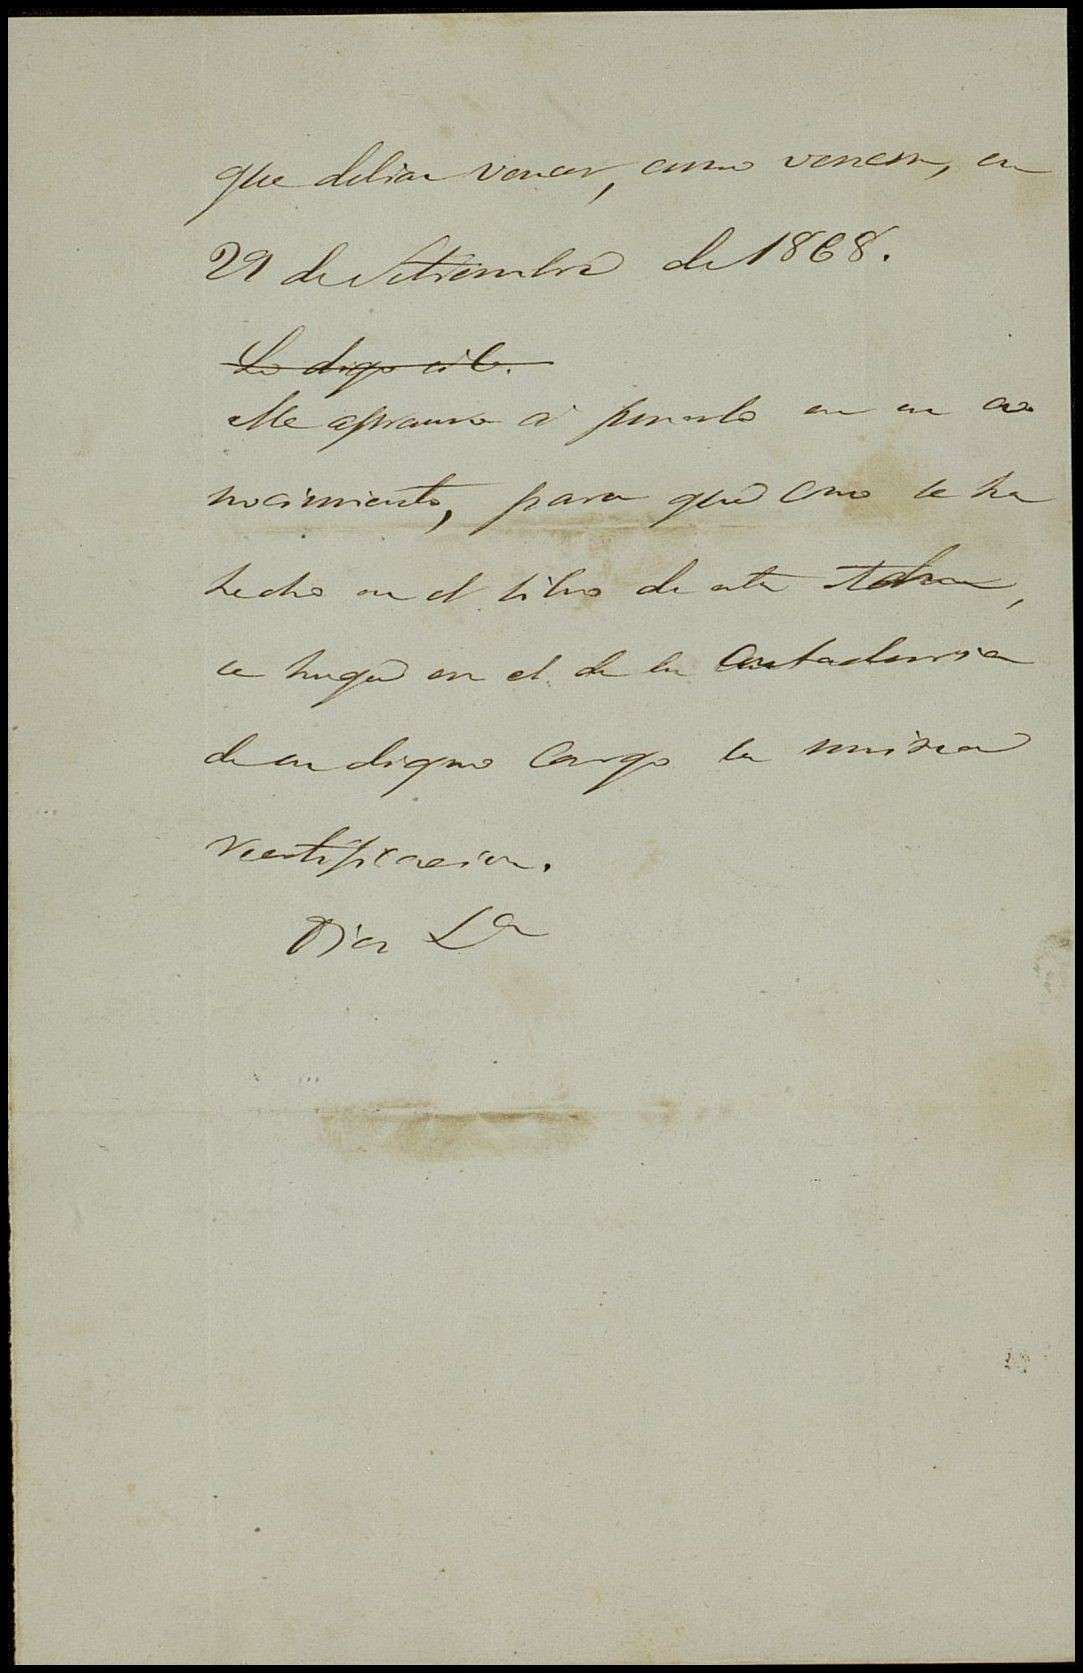 que debian vencer, como vencen, en
29 de Setiembre de 1868.
Lo digo á V.
Me apresuro á ponerlo en su co
nocimiento, para que como se ha
hecho en el libro de esta
se haga en el de la Contaduria
de su digno cargo la misma
rectificacion.
Dios